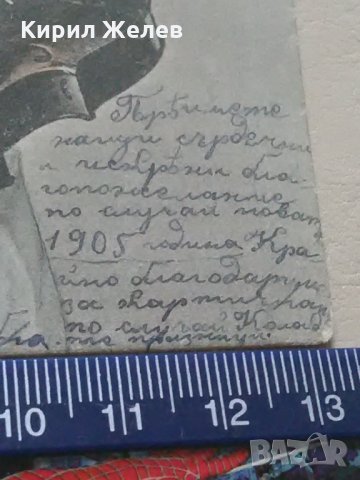 Кирил Желев
Приемете
нашуи сърдечни
и искрѣни бла-
гопожелания
по случай новата
1905 година Кра-
йно благодарим
за картичката
по случай Колед-
те празници.
10 11 12 13
BAZAR